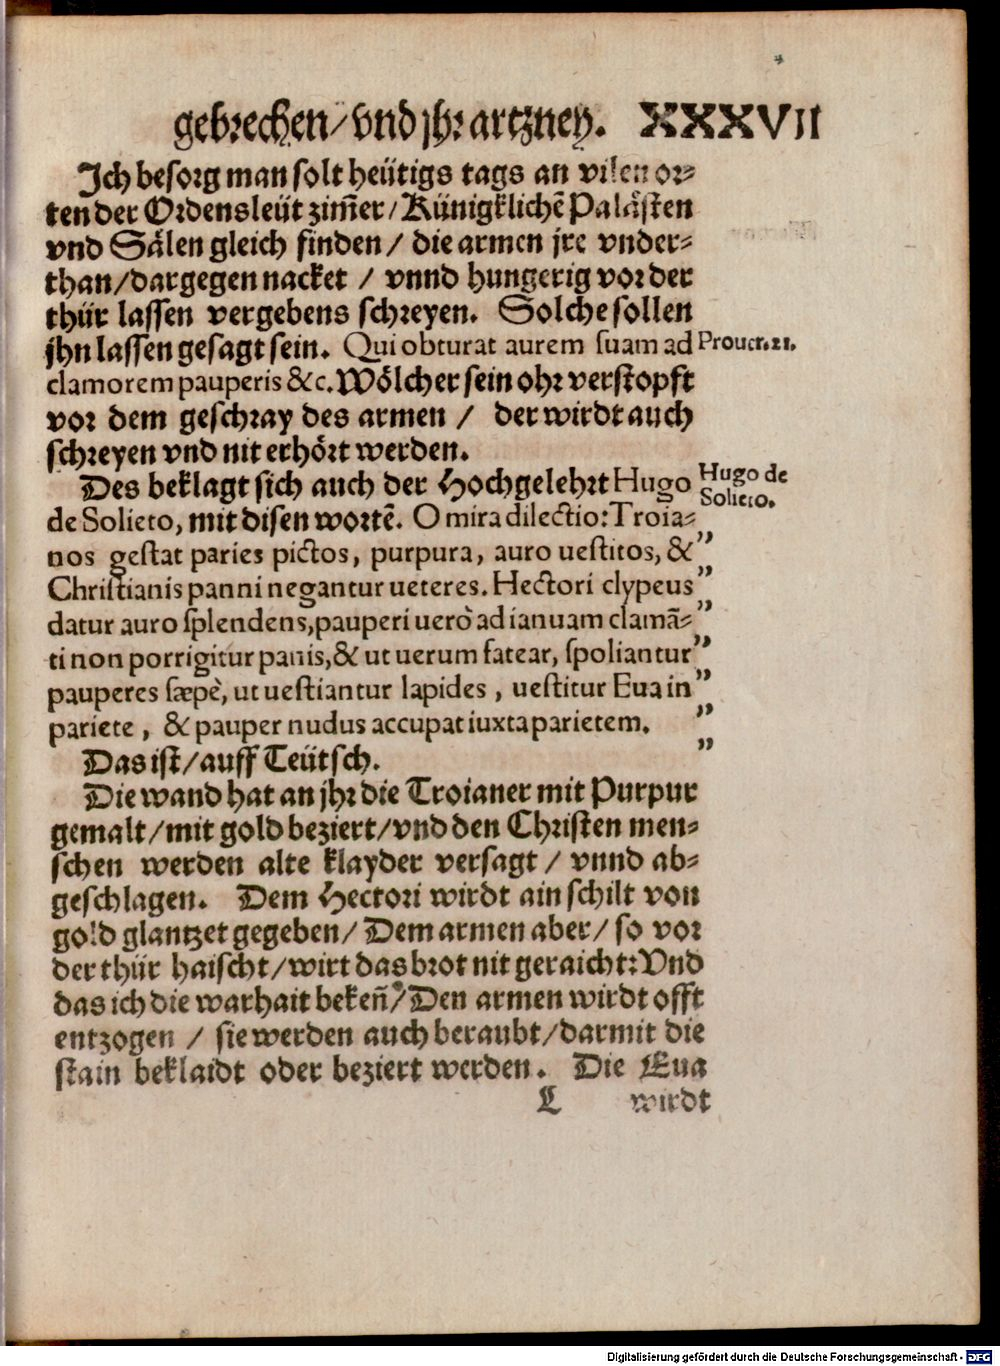 gebrechen/ vnd jhr artzney. XXXVII
Ich besorg man solt heütigs tags an vilen or⸗
ten der Ordensleüt zim̃er/ Künigklichẽ Palästen
vnd Sälen gleich finden/ die armen jre vnder⸗
than/dargegen nacket / vnnd hungerig vor der
thür lassen vergebens schreyen. Solche sollen
jhn lassen gesagt sein. Qui obturat aurem suam ad
Prouer. 21.
clamorem pauperis &c. Wölcher sein ohr verstopft
vor dem geschray des armen / der wirdt auch
schreyen vnd nit erhört werden.
Des beklagt sich auch der Hochgelehrt Hugo
Hugo de
Solieto.
de Solieto, mit disen wortẽ. O mira dilectio: Troia⸗
nos gestat paries pictos, purpura, auro uestitos, & ”
Christianis panni negantur ueteres. Hectori clypeus ”
datur auro splendens, pauperi uerò ad ianuam clamã⸗ ”
ti non porrigitur panis, & ut uerum fatear, spoliantur ”
pauperes sæpè, ut uestiantur lapides , uestitur Eua in ”
pariete , & pauper nudus accupat iuxta parietem. ”
Das ist/ auff Teütsch. ”
Die wand hat an jhr die Troianer mit Purpur
gemalt/ mit gold beziert/ vnd den Christen men⸗
schen werden alte klayder versagt / vnnd ab⸗
geschlagen. Dem Hectori wirdt ain schilt von
gold glantzet gegeben/ Dem armen aber/ so vor
der thür haischt/ wirt das brot nit geraicht: Vnd
das ich die warhait bekeñ/ Den armen wirdt offt
entzogen / sie werden auch beraubt/ darmit die
stain beklaidt oder beziert werden. Die Eua
L wirdt
Digitalisierung gefördert durch die Deutsche Forschungsgemeinschaft - DFG